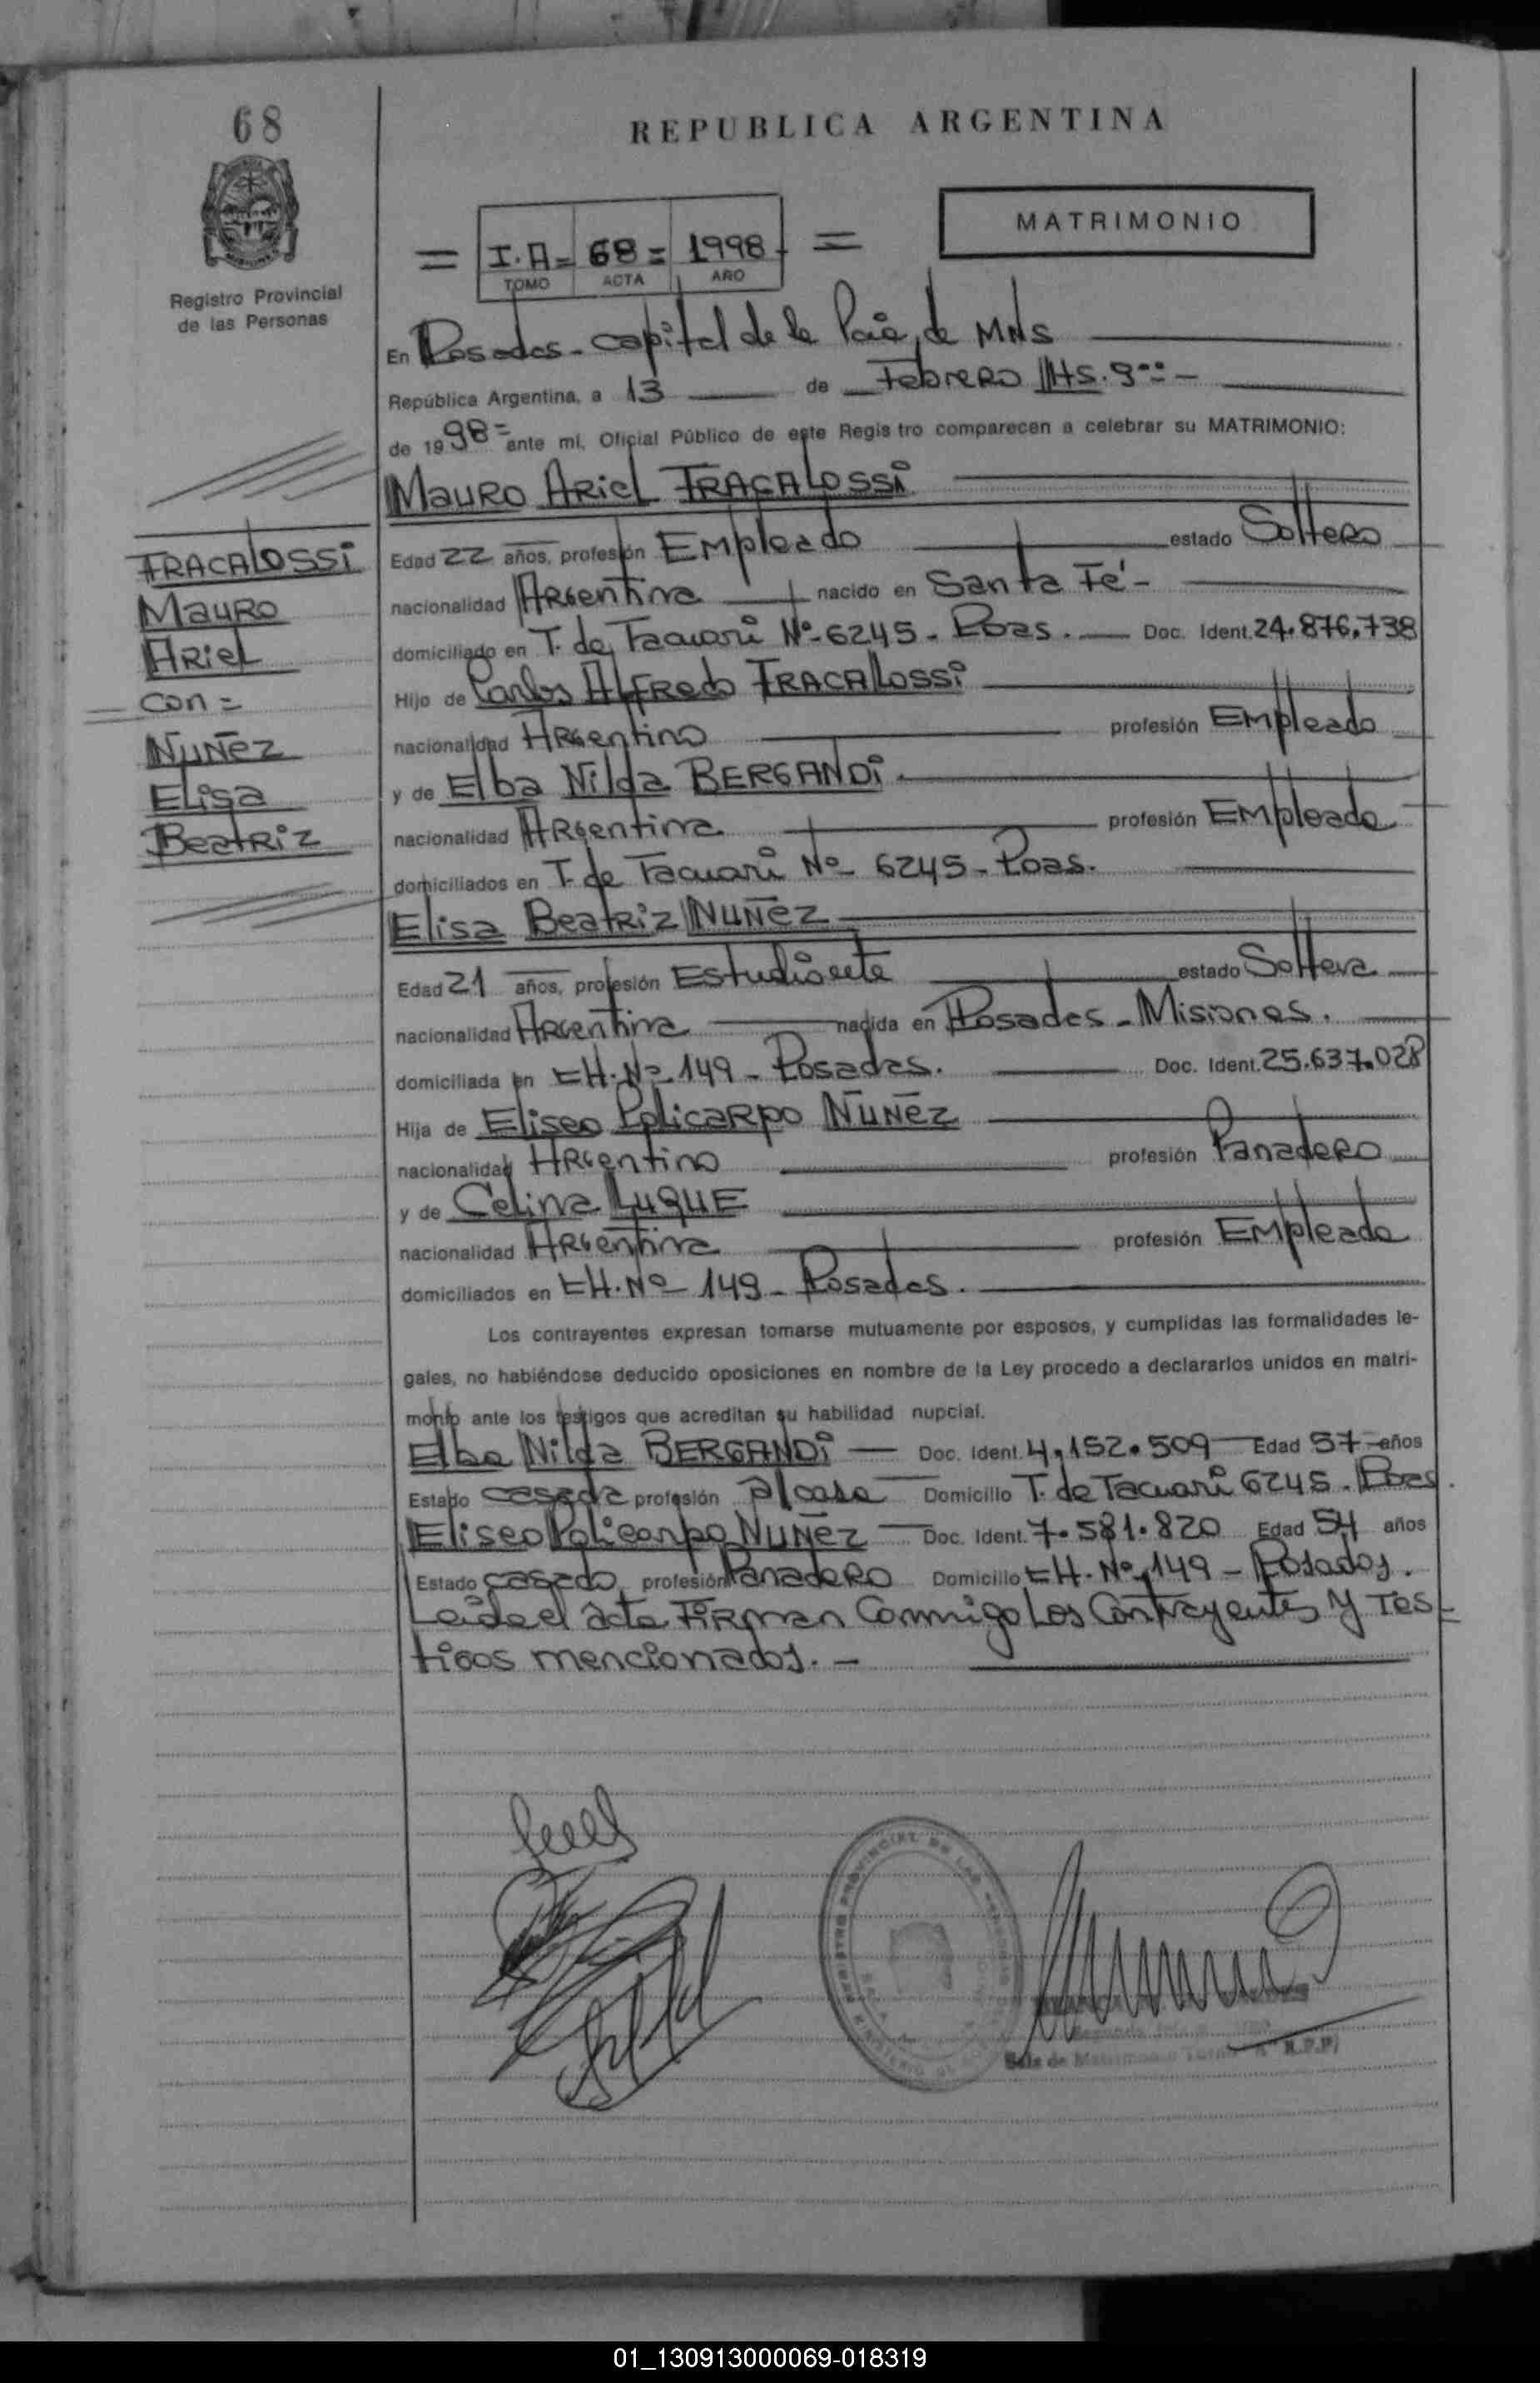 68
REPUBLICA ARGENTINA
MATRIMONIO
= I.A= 68= 1998- =
TOMO ACTA AÑO
Registro Provincial
de las Personas
En Posadas - capital de la Pcia, de MNS
República Argentina, a 13 de Febrero Hs. 9
de 1998= ante mí, Oficial Público de este Registro comparecen a celebrar su MATRIMONIO:
Mauro Ariel FRACALOSSI
FRACALOSSI
Mauro
Ariel
con =
NUÑEZ
Elisa
Beatriz
Edad 22 años, profesión Empleado estado Soltero
nacionalidad Argentina nacido en Santa Fé -
domiciliado en T. de Tacuarí Nº 6245 - Pdas. Doc. Ident. 24.876.738
Hijo de Carlos Alfredo FRACALOSSI
nacionalidad Argentino profesión Empleado
y de Elba Nilda BERGANDI.
nacionalidad Argentina profesión Empleada
domiciliados en T. de Tacuarí Nº 6245 - Pdas.
Elisa Beatriz NUÑEZ
Edad 21 años, profesión Estudiante estado Soltera
nacionalidad Argentina nacida en Posadas - Misiones.
domiciliada en CH. Nº 149 - Posadas. Doc. Ident. 25.637.028
Hija de Eliseo Policarpo NUÑEZ
nacionalidad Argentino profesión Panadero
y de Celina LUQUE
nacionalidad Argentina profesión Empleada
domiciliados en CH. Nº 149 - Posadas.
Los contrayentes expresan tomarse mutuamente por esposos, y cumplidas las formalidades le-
gales, no habiéndose deducido oposiciones en nombre de la Ley procedo a declararlos unidos en matri-
monio ante los testigos que acreditan su habilidad nupcial.
Elba Nilda BERGANDI Doc. Ident. 4.152.509 Edad 57 años
Estado casada profesión a/casa Domicilio T. de Tacuarí 6245. Pdas.
Eliseo Policarpo NUÑEZ Doc. Ident. 7.581.820 Edad 54 años
Estado casado profesión Panadero Domicilio CH. Nº 149 - Posadas.
Leída el acta Firman Conmigo Los Contrayentes y Tes-
tigos mencionados. -
REGISTRO PROVINCIAL DE LAS PERSONAS
Sala de Matrimonio R.P.P.
01_130913000069-018319